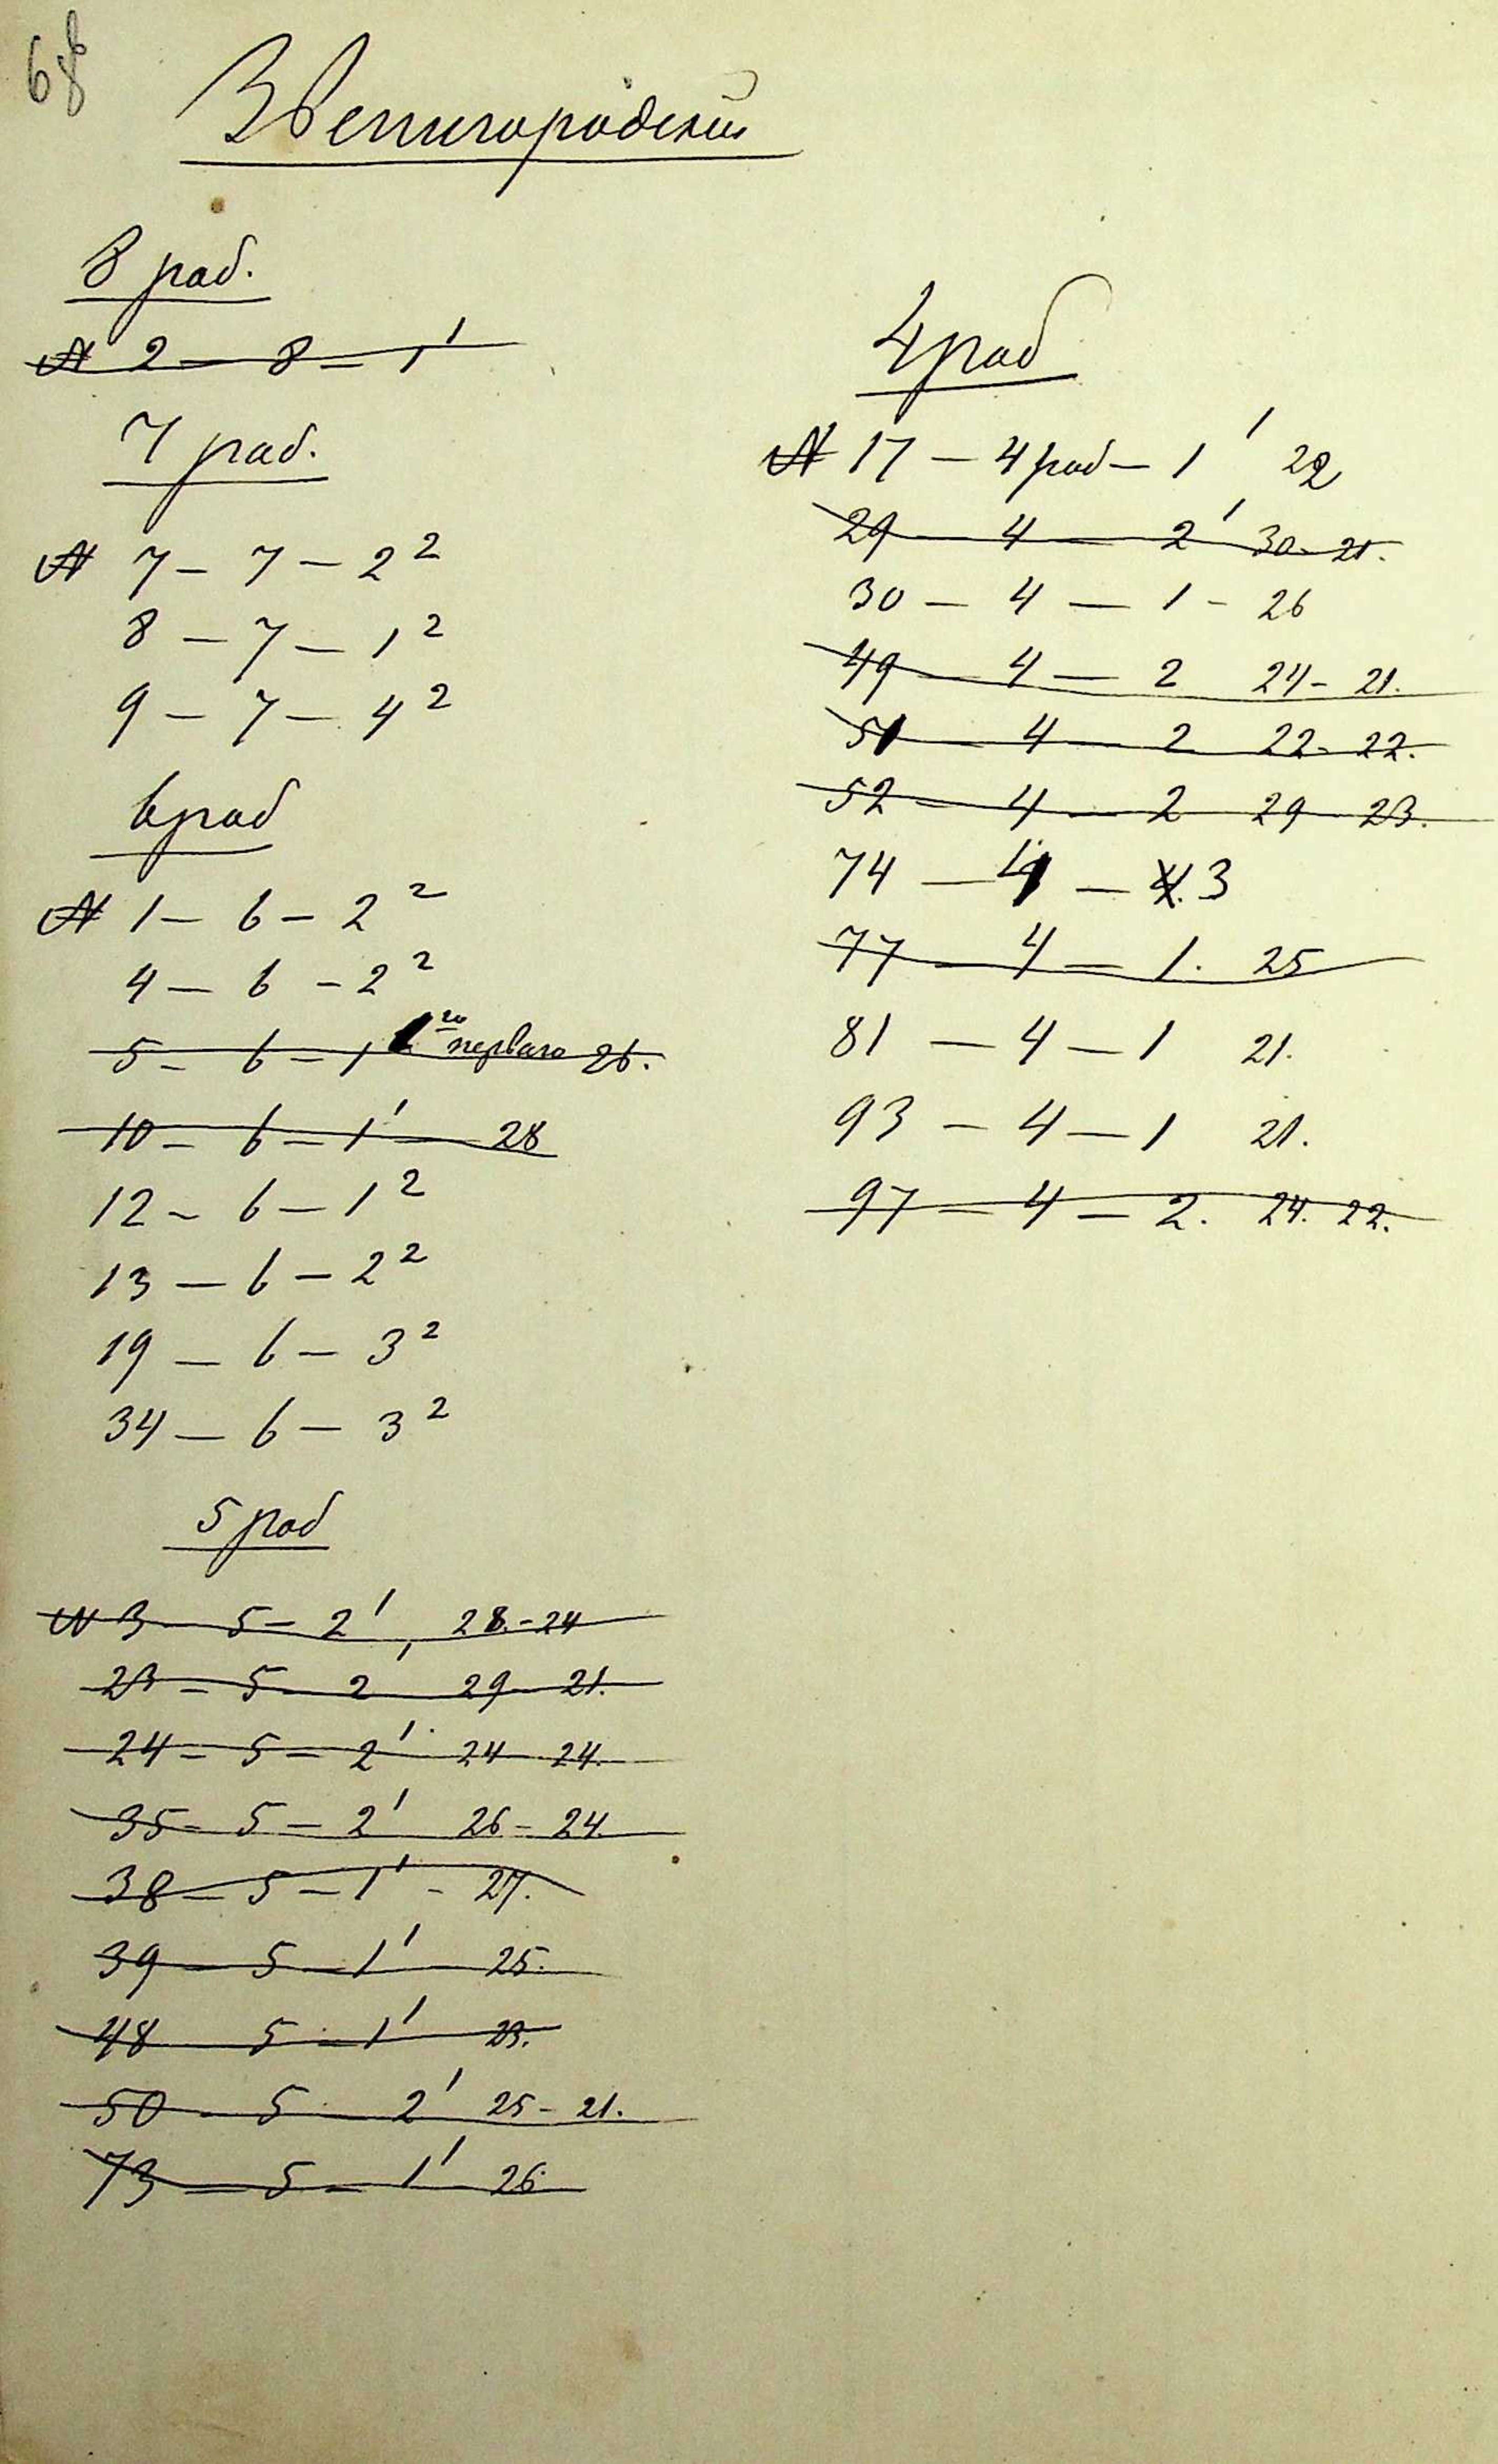 68
Звенигородский
8 раб.
№ 2 — 8 — 1 ¹
7 раб.
№ 7 — 7 — 2 ²
8 — 7 — 1 ²
9 — 7 — 4 ²
6 раб
№ 1 — 6 — 2 ²
4 — 6 — 2 ²
5 — 6 — 1 1го перваго 26.
10 — 6 — 1 ¹ — 28
12 — 6 — 1 ²
13 — 6 — 2 ²
19 — 6 — 3 ²
34 — 6 — 3 ²
5 раб
№ 3 — 5 — 2 ¹ 28. – 24
23 — 5 — 2 ¹ 29 – 21.
24 — 5 — 2 ¹ 24 – 24.
35 — 5 — 2 ¹ 26 – 24.
38 — 5 — 1 ¹ – 27.
39 — 5 — 1 ¹ 25.
48 — 5 — 1 ¹ 23.
50 — 5 — 2 ¹ 25 – 21.
73 — 5 — 1 ¹ 26.
4 раб
№ 17 — 4 раб — 1 ¹ 22
29 — 4 — 2 ¹ 30 – 21.
30 — 4 — 1 – 26
49 — 4 — 2 24 – 21.
51 — 4 — 2 22 – 22.
52 — 4 — 2 29 – 23.
74 — 4 — 4. 3
77 — 4 — 1. 25
81 — 4 — 1 21.
93 — 4 — 1 21.
97 — 4 — 2. 24. 22.